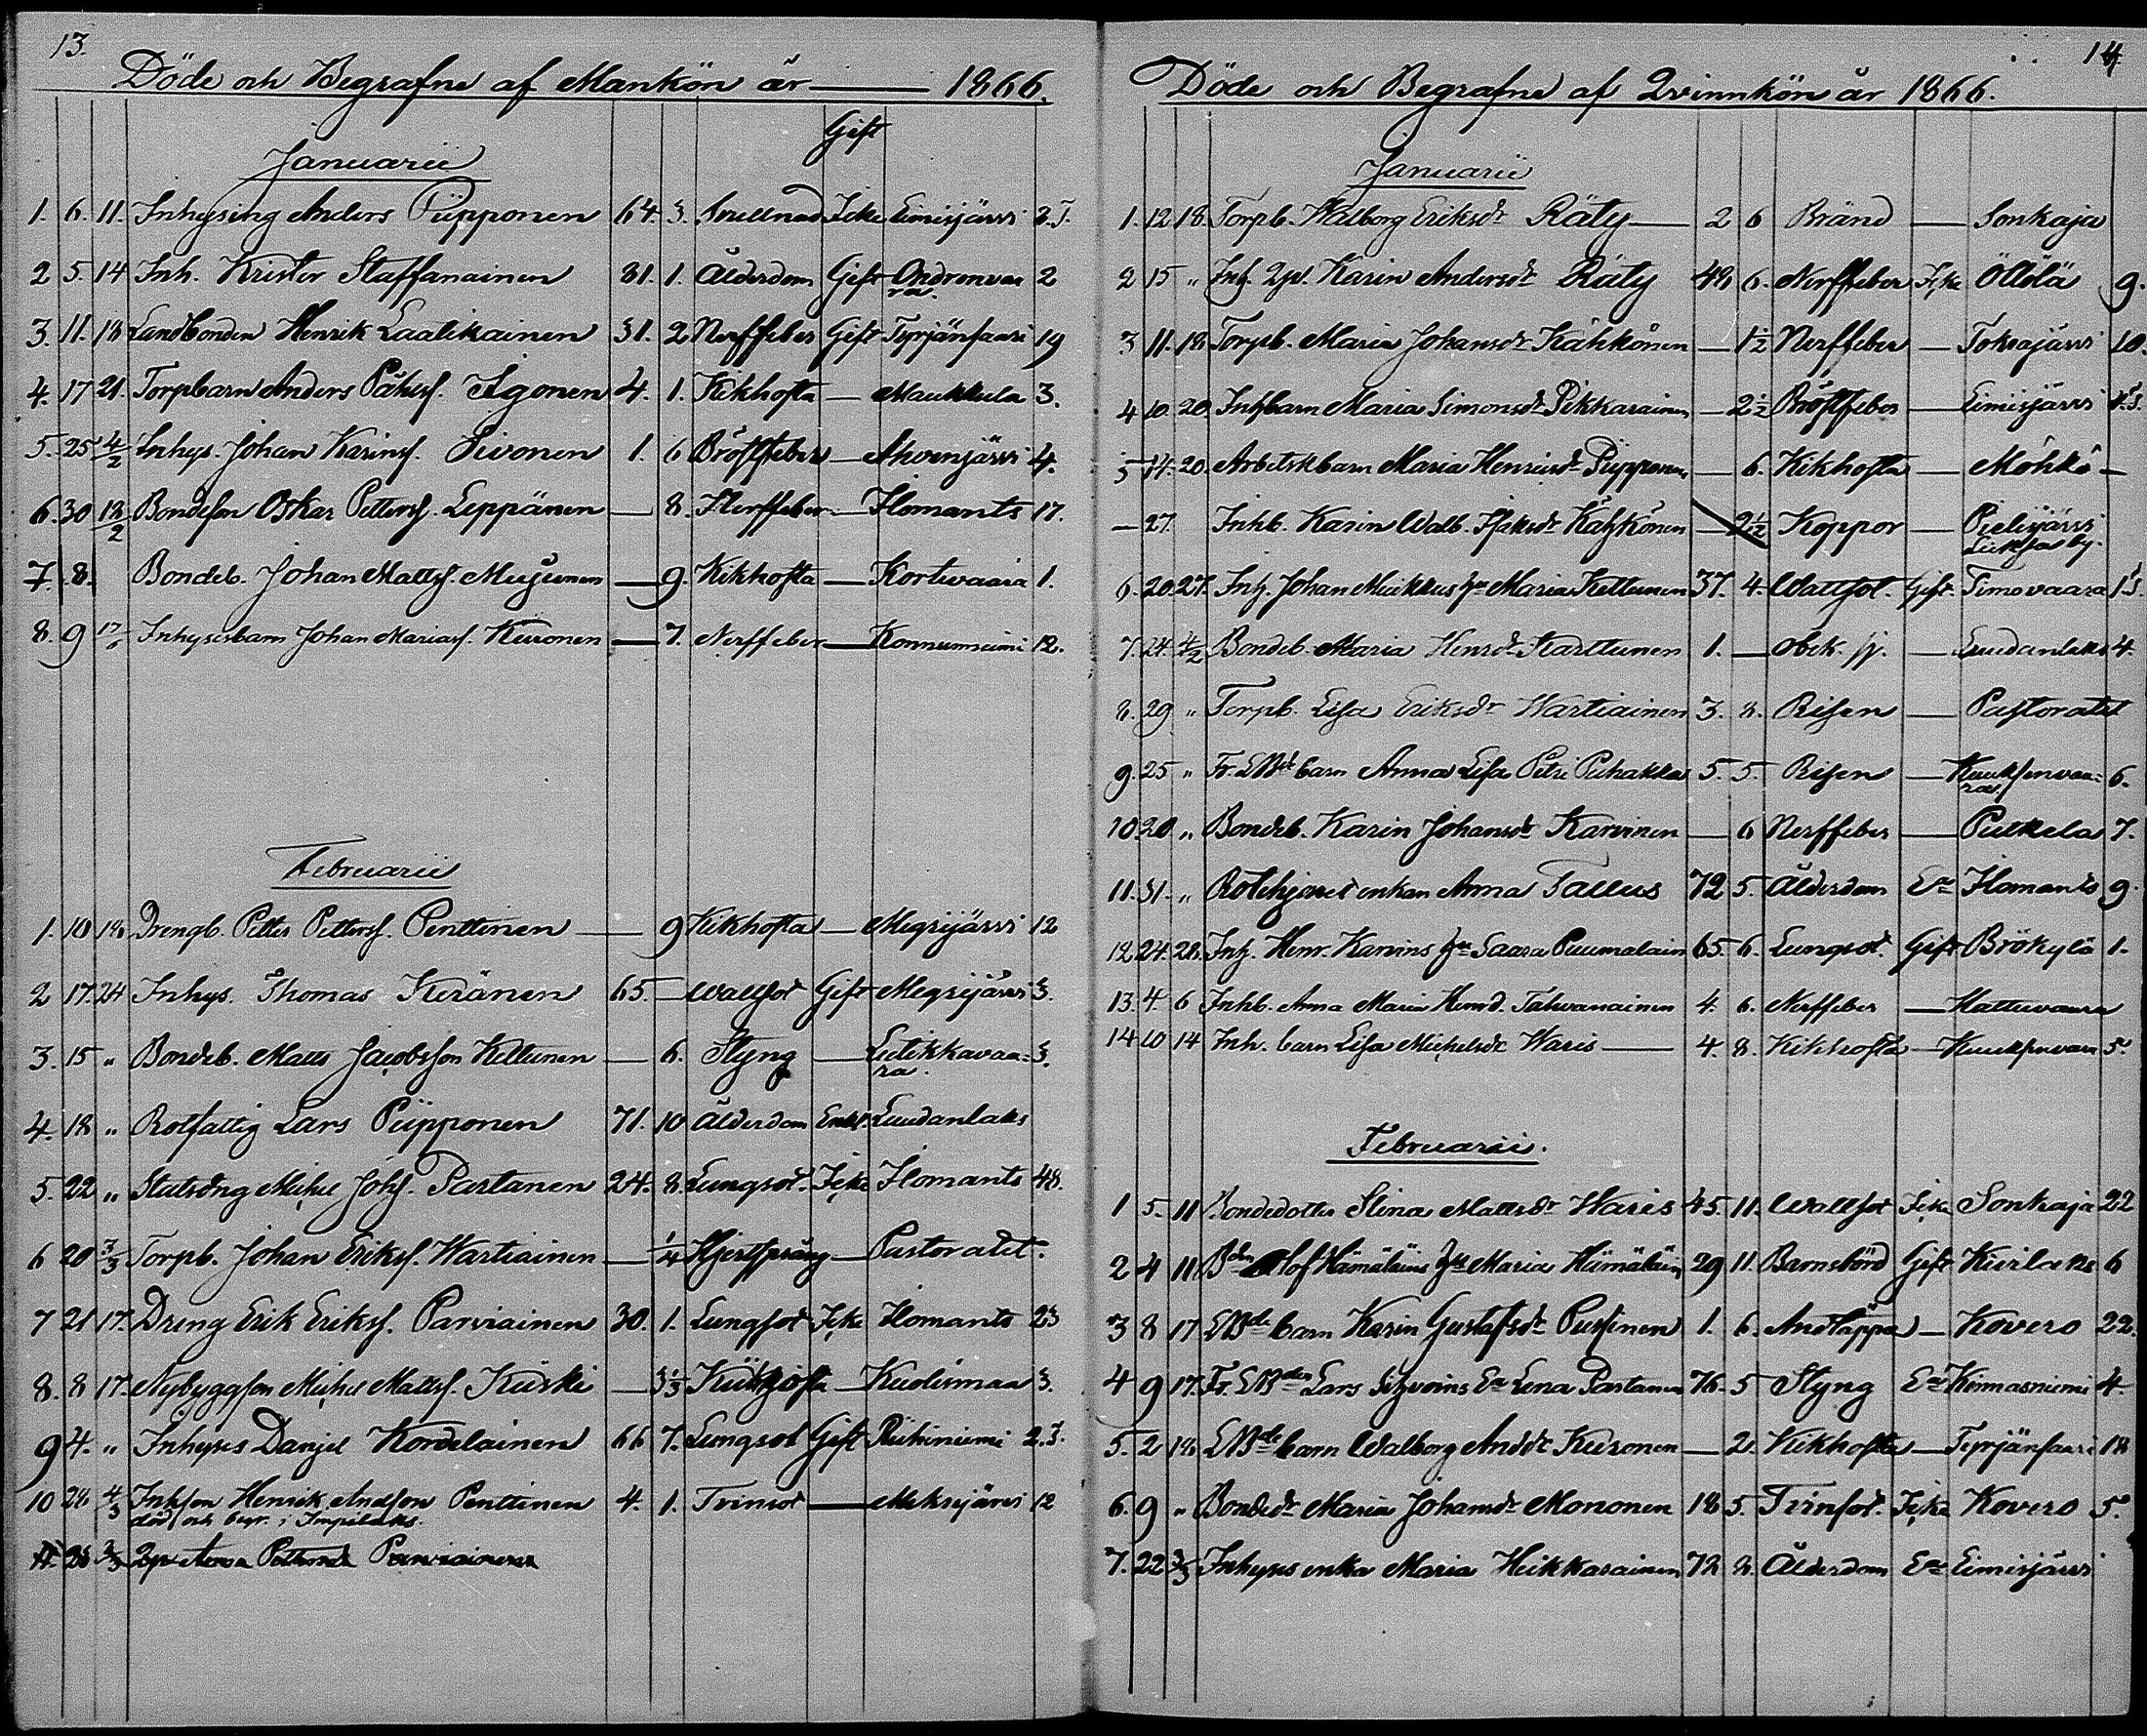 13.
Döde och Begrafne af Mankön år — 1866.
Gift
Januarii
1. 6. 11. Inhysing Anders Piipponen 64. 3. Icke Eimisjärvi 2.J.
2 5. 14 Inh. Krister Staffanainen 81. 1. Ålderdom Gift Ondronvaa 2
ra.
3. 11. 18 Landbonden Henrik Laatikainen 31. 2 Nerffeber Gift Tyrjänsaari 19
4. 17 21. Torpbarn Anders Igonen 4. 1. Kikhosta — Maukkula 3.
5. 25 4/2 Inhys. Johan Karins. Sivonen 1. 6 Bröstfeber — Ahvenjärvi 4.
6. 30 18/2 Bondeson Oskar Petters. Leppänen — 8. Nerffeber — Ilomants 17.
7. 8. Bondeb. Johan Matts. Mujunen — 9. Kikhosta — Kortevaara 1.
8. 9 Inhysesbarn Johan Marias. Kuronen — 7. Nerffeber — Konnunniemi 12.
Februarii
1. 10 18 Drengb. Petter Petters. Penttinen — 9 Kikhosta — Megrijärvi 12
2 17. 24 Inhys. Thomas Keränen 65. — Wattsot Gift Megrijärvi 3.
3. 15 " Bondeb. Matts Jacobsson Kettunen — 6. Styng — Lutikkavaa- 3.
ra.
4. 18 " Rotfattig Lars Piipponen 71. 10 Ålderdom Enkl. Luudanlaks
5. 22 " Statsdrng Michel Johs. Partanen 24. 8. Lungsot. Icke Ilomants 48.
6 20 3/3 Torpb. Johan Eriks. Wartiainen — 1/4 Hjertsprång — Pastoratet.
7 21 17. Dreng Erik Eriks. Parviainen 30. 1. Lungsot Icke Ilomants 23
8. 8 17. Nybyggson Michel Matts. Kiiski — 3 1/3 Kikhosta — Kuolismaa 3.
9 4. " Inhyses Danjel Kordelainen 66 7. Lungsot Gift Riihiniemi 2.J.
10 28 4/3 Inhson Henrik Andson Penttinen 4. 1. Tvinsot — Mekrijärvi 12
död och begr. i Impilaks.
11. 28 3/3 Parviainen
14
Döde och Begrafne af Qvinnkön år 1866.
Januarii
1. 12 18. Torpb. Walborg Eriksdr Räty — 2 6 Bränd — Sonkaja
2 15 " Inh. Qpl. Karin Andersdr Räty 48 6. Nerffeber Icke Öllölä 9.
3 11. 18 Torpb. Maria Johansdr Kähkönen — 1 1/2 Nerffeber — Toksajärvi 10.
4 10. 20. Inhbarn Maria Simonsdr Pikkarainen — 2 1/2 Bröstfeber — Eimisjärvi
5 14. 20. Arbetskbarn Maria Henricsdr Piipponen — 6. Kikhosta — Möhkö —
— 27. Inhb. Karin Walb. Isaksdr Kähkönen — 2 1/2 Koppor — Pielisjärvi
Lieksa by.
6. 20. 27. Inh. Johan Muikkus hu Maria Kettunen 37. 4. Wattsot. Gift Timovaara
7. 24. 4/2 Bondeb. Maria Henrdr Karttunen 1. — Obek. sj. — Luudanlaks 4.
8. 29 " Torpb. Lisa Eriksdr Wartiainen 3. 8. Risen — Pastoratet
9. 25 " Fr. LBds barn Anna Lisa Petri Puhakka 5. 5. Risen — Kuuksenvaa- 6.
ra
10. 20 " Bondeb. Karin Johansdr Karvinen — 6 Nerffeber — Putkela 7.
11. 31. " Rotehjonet enkan Anna Tallus 72 5. Ålderdom Ea Ilomants 9.
12 24. 28. Inh. Henr. Karvins hu Saara Puumalain 65. 6. Lungsot. Gift Brökylä 1.
13. 4. 6 Inhb. Anna Maria Henrd. Tahvanainen 4. 6. Nerffeber — Hattuvaara
14 10 14 Inh. barn Lisa Michelsdr Waris — 4. 8. Kikhosta — Kuuksenvaara 5.
Februarii.
1 5. 11 Bondedotter Stina Mattsdr Waris 45. 11. Wattsot Icke Sonkaja 22
2 4 11 Bdn Olof Hämäläins hu Maria Hämäläin 29 11. Barnsbörd Gift Kivilaks 6
3 8 17 LBds barn Karin Gustafsdr Pussinen 1. 6. Andtäppa — Kovero 22.
4 9 17. Fr. LBdn Lars Sihvoins Ea Lena Partanen 76. 5 Styng Ea Kinnasniemi 4.
5. 2 18. LBds barn Walborg Anddr Kuronen — 2. Kikhosta — Tyrjänsaari 18
6. 9 " Bondedr Maria Johansdr Mononen 18 5. Tvinsot. Icke Kovero 5.
7. 22 3/3 Inhyses enka Maria Heikkarainen 72 8. Ålderdom Ea Eimisjärvi